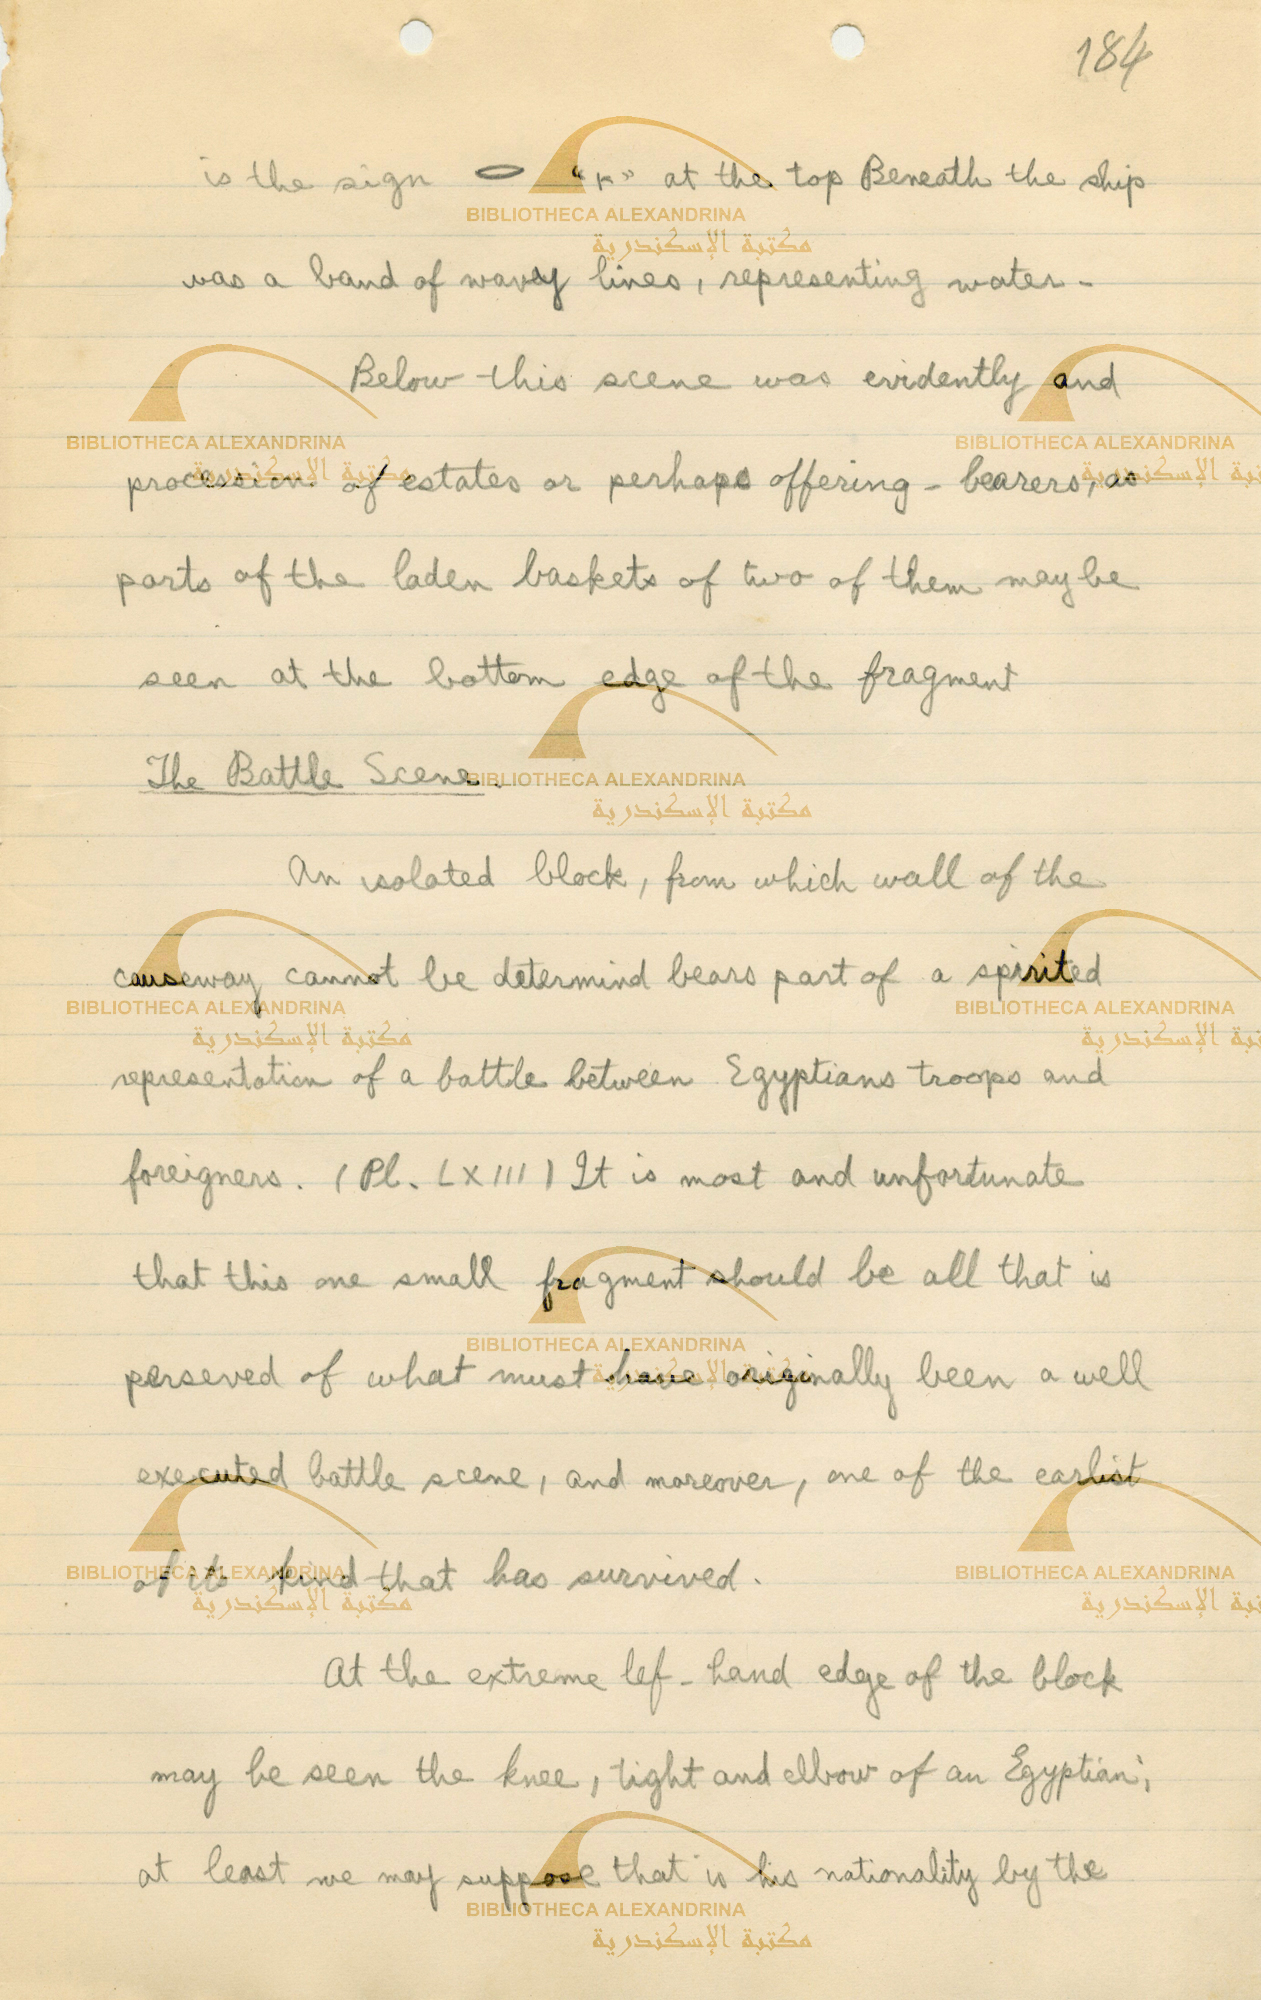 184
is the sign 𓂋 "r" at the top Beneath the ship
was a band of wavey lines, representing water-
Below this scene was evidently and
procession of estates or perhaps offering-bearers, as
parts of the laden baskets of two of them may be
seen at the bottom edge of the fragment
The Battle Scene.
An isolated block, from which wall of the
causeway cannot be determind bears part of a spirited
representation of a battle between Egyptians troops and
foreigners. (Pl. LXIII) It is most and unfortunate
that this one small fragment should be all that is
perseved of what must have originally been a well
executed battle scene, and moreover, one of the earlist
of its kind that has survived.
At the extreme lef-hand edge of the block
may be seen the knee, tight and elbow of an Egyptian;
at least we may suppose that is his nationality by the
BIBLIOTHECA ALEXANDRINA
مكتبة الإسكندرية